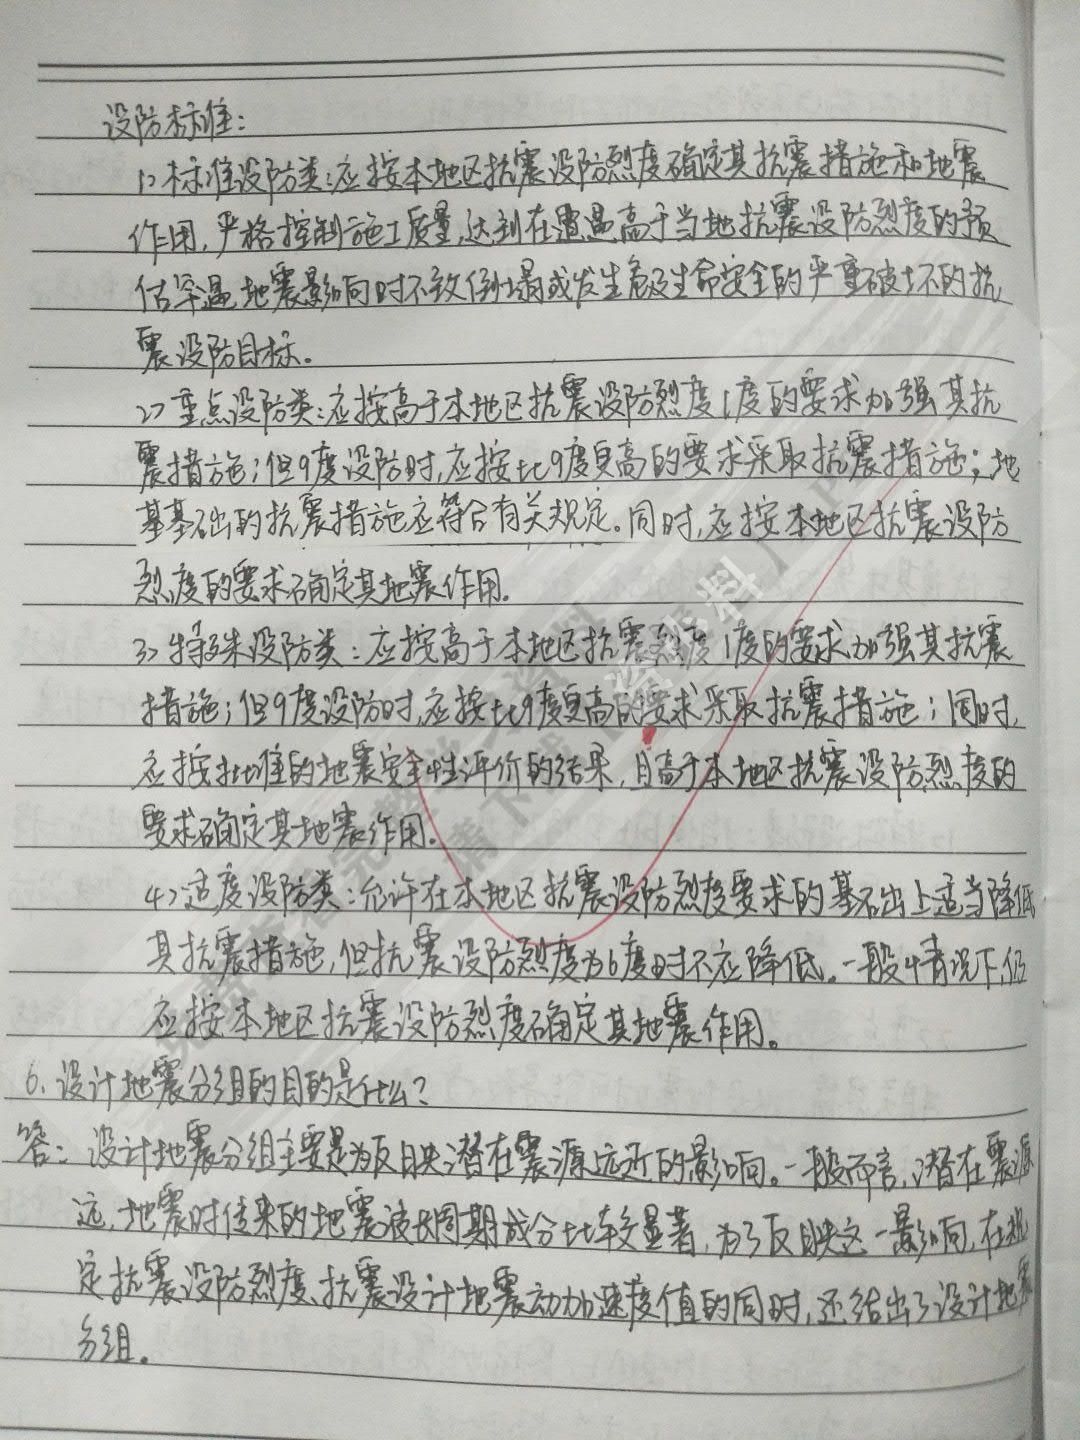 设防标准:
1> 标准设防类:应按本地区抗震设防烈度确定其抗震措施和地震
作用,严格控制施工质量,达到在遭遇高于当地抗震设防烈度的预
估罕遇地震影响时不致倒塌或发生危及生命安全的严重破坏的抗
震设防目标。
2> 重点设防类:应按高于本地区抗震设防烈度1度的要求加强其抗
震措施;但9度设防时,应按比9度更高的要求采取抗震措施;地
基基础的抗震措施应符合有关规定。同时,应按本地区抗震设防
烈度的要求确定其地震作用。
3> 特殊设防类:应按高于本地区抗震烈度1度的要求加强其抗震
措施;但9度设防时,应按比9度更高的要求采取抗震措施;同时,
应按批准的地震安全性评价的结果,且高于本地区抗震设防烈度的
要求确定其地震作用。
4> 适度设防类:允许在本地区抗震设防烈度要求的基础上适当降低
其抗震措施,但抗震设防烈度为6度时不应降低。一般情况下,仍
应按本地区抗震设防烈度确定其地震作用。
6、设计地震分组的目的是什么?
答:设计地震分组主要是为反映潜在震源远近的影响。一般而言,潜在震源
远,地震时传来的地震波长周期成分比较显著,为了反映这一影响,在规
定抗震设防烈度、抗震设计地震动加速度值的同时,还给出了设计地震
分组。